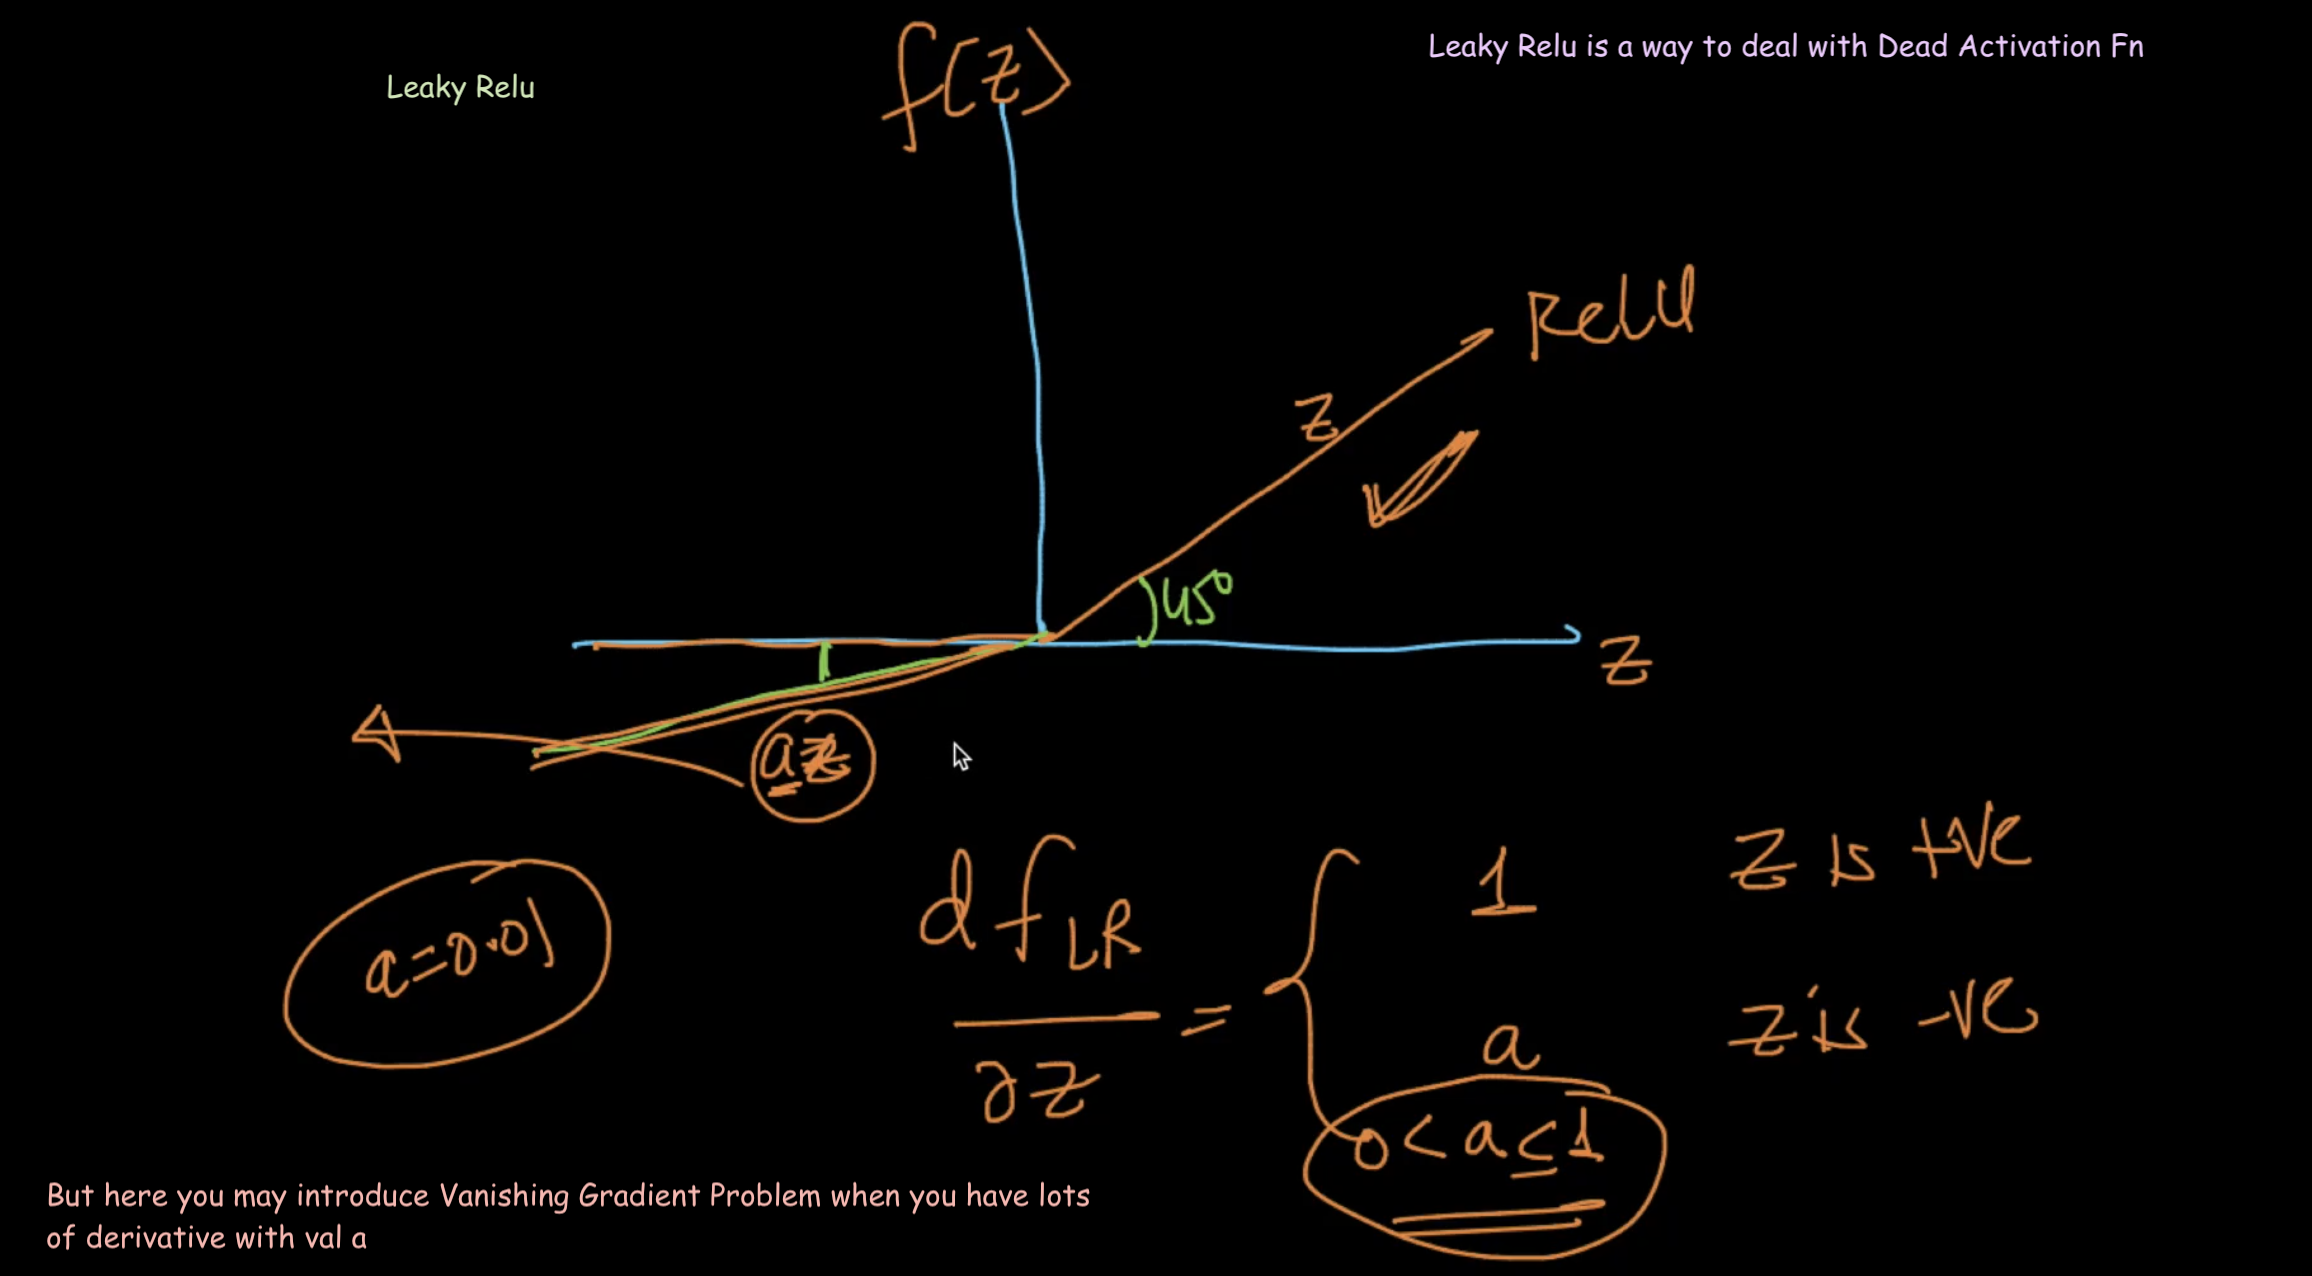 f(z)
Leaky Relu is a way to deal with Dead Activation Fn
Leaky Relu
ReLU
z
45°
z
az
z is +ve
1
df_LR
a=0.01
∂z
=
z is -ve
a
0 < a ≤ 1
But here you may introduce Vanishing Gradient Problem when you have lots
of derivative with val a